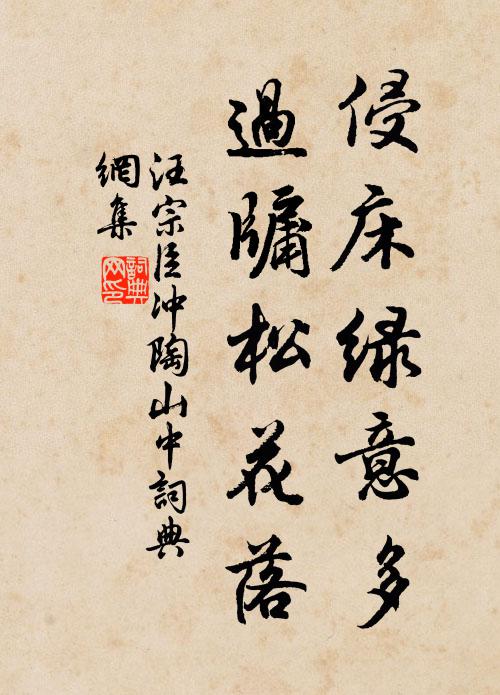 侵床緑意多
過牖松花落
汪宗臣冲陶山中詞典
網集
詞典
网印